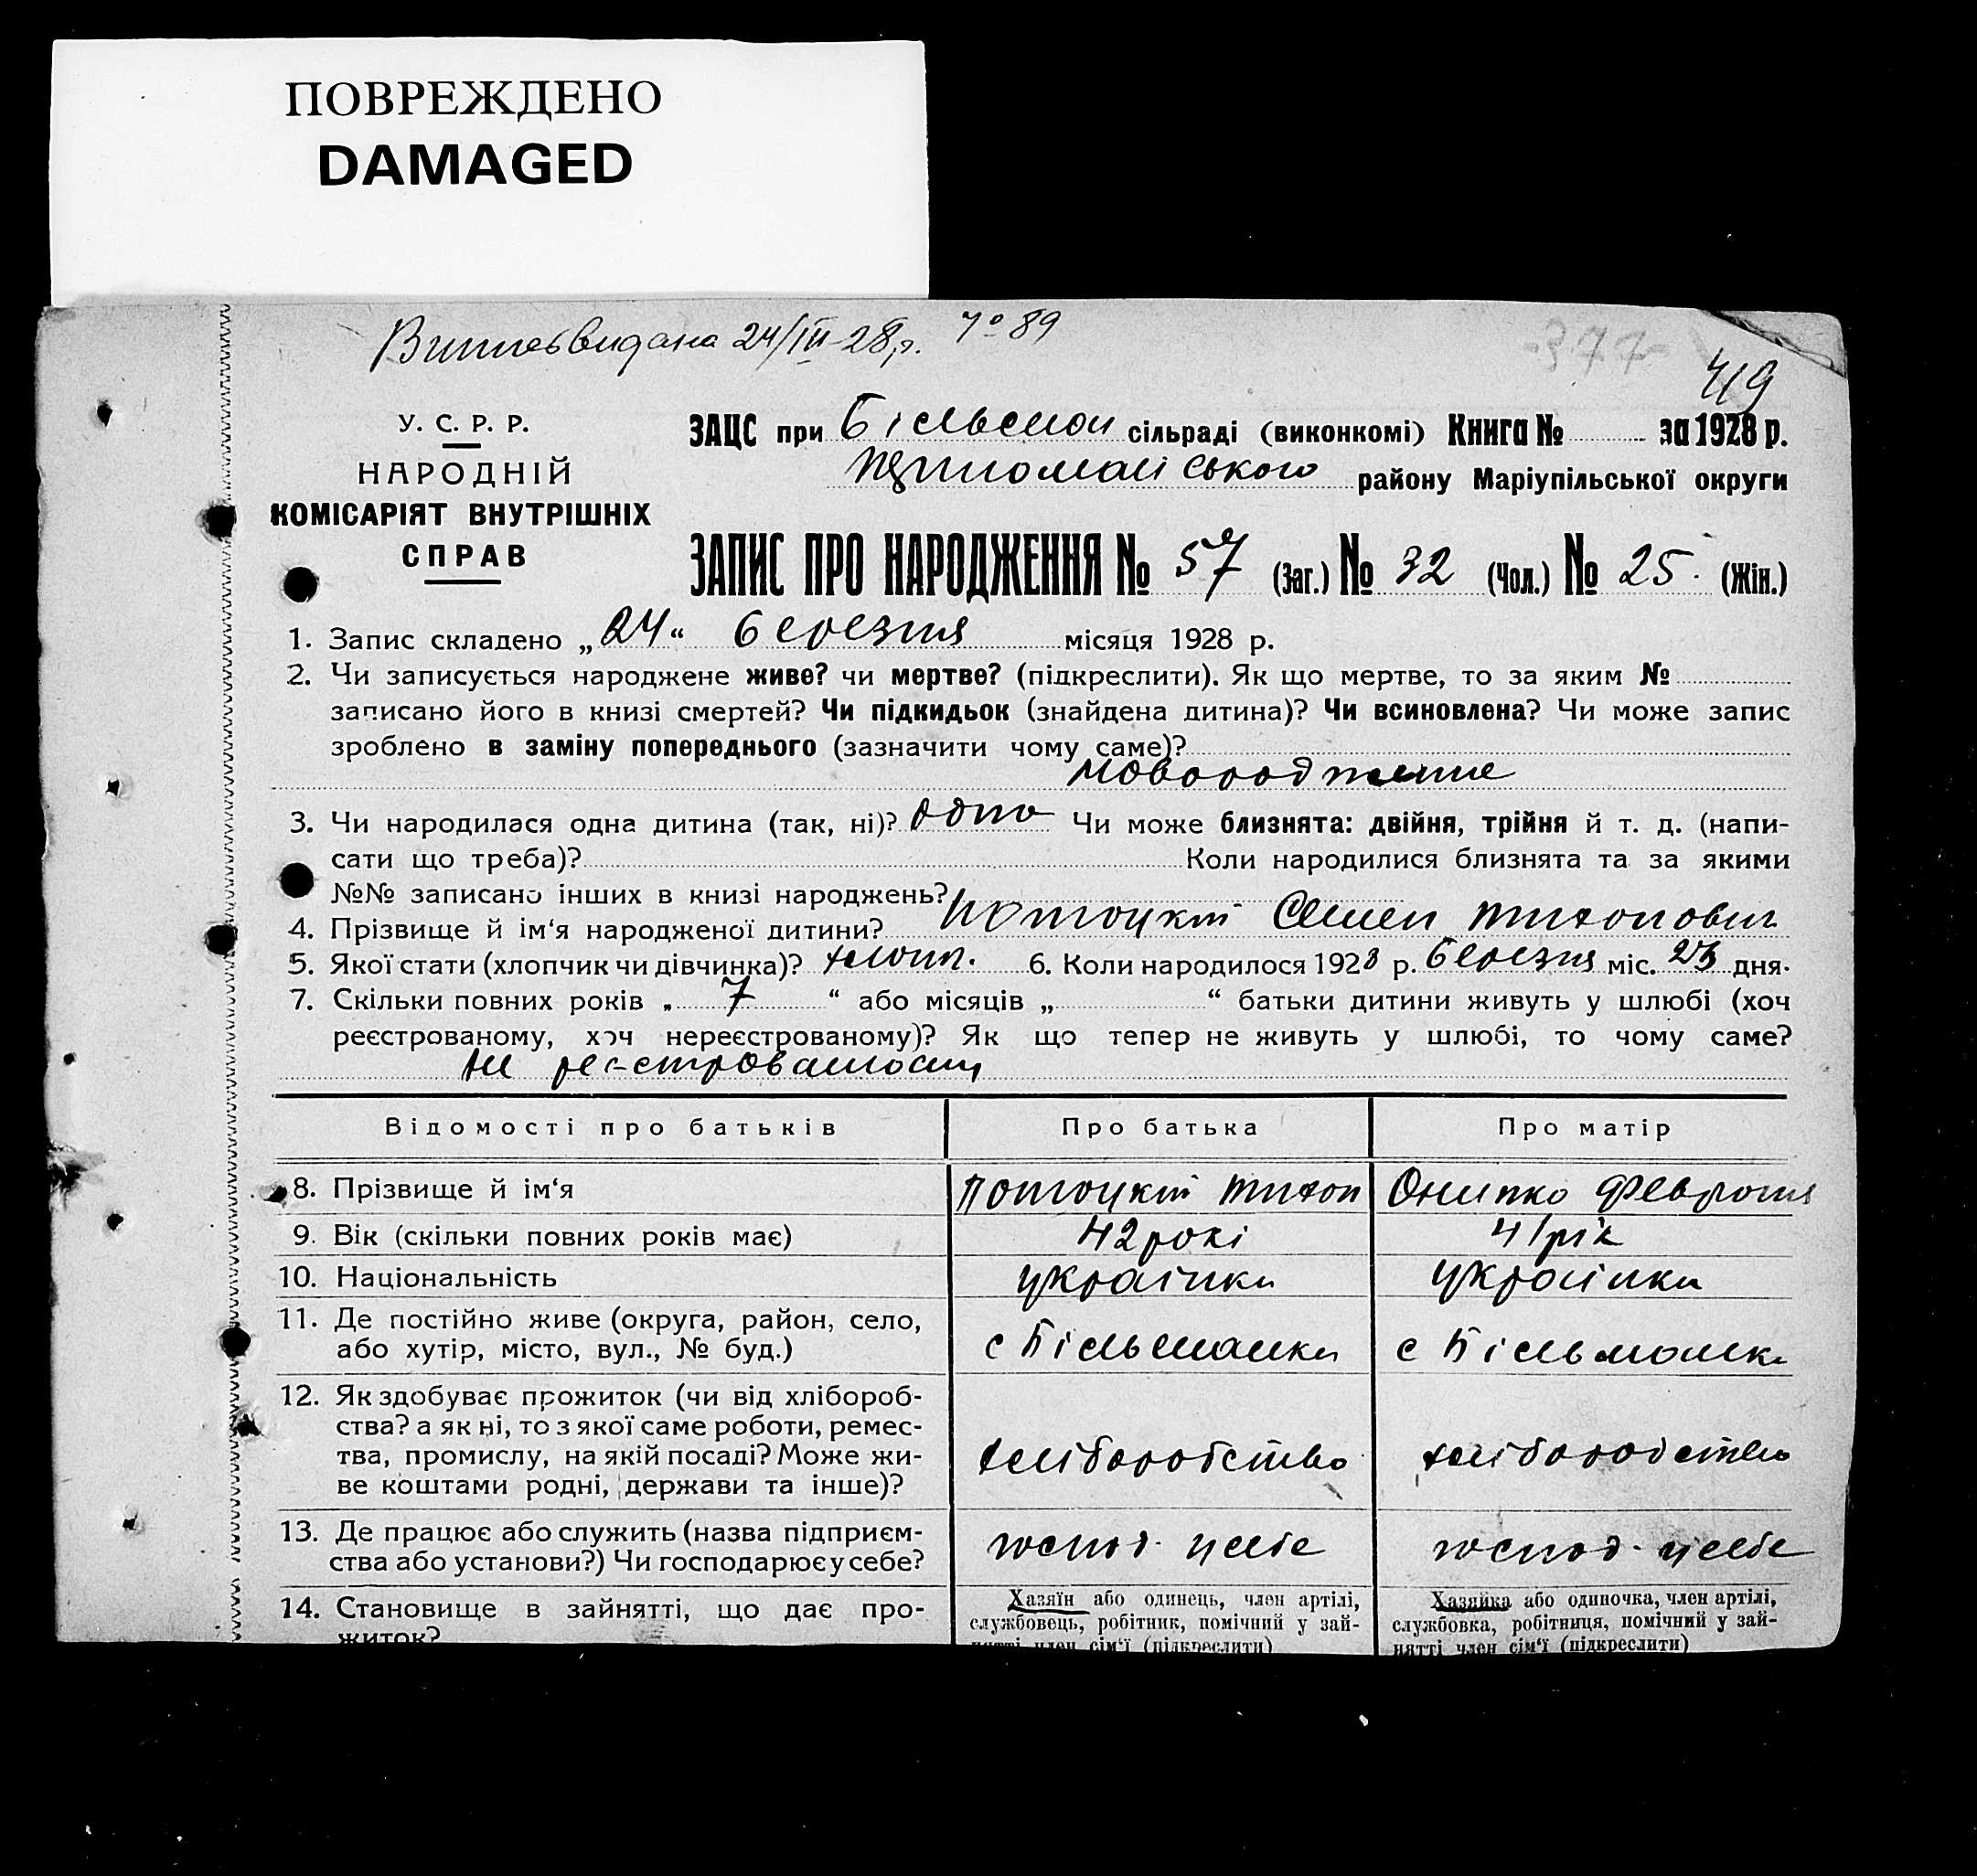 ПОВРЕЖДЕНО
DAMAGED
24/III-28 р. № 89
377
419
У. С. Р. Р.
НАРОДНІЙ
КОМІСАРІЯТ ВНУТРІШНІХ
СПРАВ
ЗАЦС при Більман сільраді (виконкомі) Книга № за 1928 р.
району Маріупільської округи
ЗАПИС ПРО НАРОДЖЕННЯ № 57 (Заг.) № 32 (Чол.) № 25 (Жін.)
1. Запис складено „24“ березня місяця 1928 р.
2. Чи записується народжене живе? чи мертве? (підкреслити). Як що мертве, то за яким №
записано його в книзі смертей? Чи підкидьок (знайдена дитина)? Чи всиновлена? Чи може запис
зроблено в заміну попереднього (зазначити чому саме)?
3. Чи народилася одна дитина (так, ні)? одно Чи може близнята: двійня, трійня й т. д. (напи-
сати що треба)? Коли народилися близнята та за якими
№№ записано інших в книзі народжень?
4. Прізвище й ім‘я народженої дитини? Потоцкий Семен Тихонович
5. Якої стати (хлопчик чи дівчинка)? хлопч. 6. Коли народилось 1928 р. березня міс. 23 дня.
7. Скільки повних років „ 7 “ або місяців „ “ батьки дитини живуть у шлюбі (хоч
реєстрованому, хоч нереєстрованому)? Як що тепер не живуть у шлюбі, то чому саме?
Відомості про батьків Про батька Про матір
8. Прізвище й ім‘я Потоцкий Тихон Онипко Феврония
9. Вік (скільки повних років має) 42 роки 41 рік
10. Національність українка
11. Де постійно живе (округа, район, село, або хутір, місто, вул., № буд.) с Більманка с Більманка
12. Як здобуває прожиток (чи від хлібороб-
ства? а як ні, то з якої саме роботи, ремес-
тва, промислу, на якій посаді? Може жи- хліборобство хліборобство
ве коштами родні, держави та інше)?
13. Де працює або служить (назва підприєм- господ. у себе господ. у себе
ства або установи?) Чи господарює у себе?
14. Становище в зайнятті, що дає про- Хазяїн або одинець, член артілі, Хазяйка або одиночка, член артілі,
службовець, робітник, помічний у зай- службовка, робітниця, помічний у зай-
житок? нятті член сім‘ї (підкреслити) нятті член сім‘ї (підкреслити)